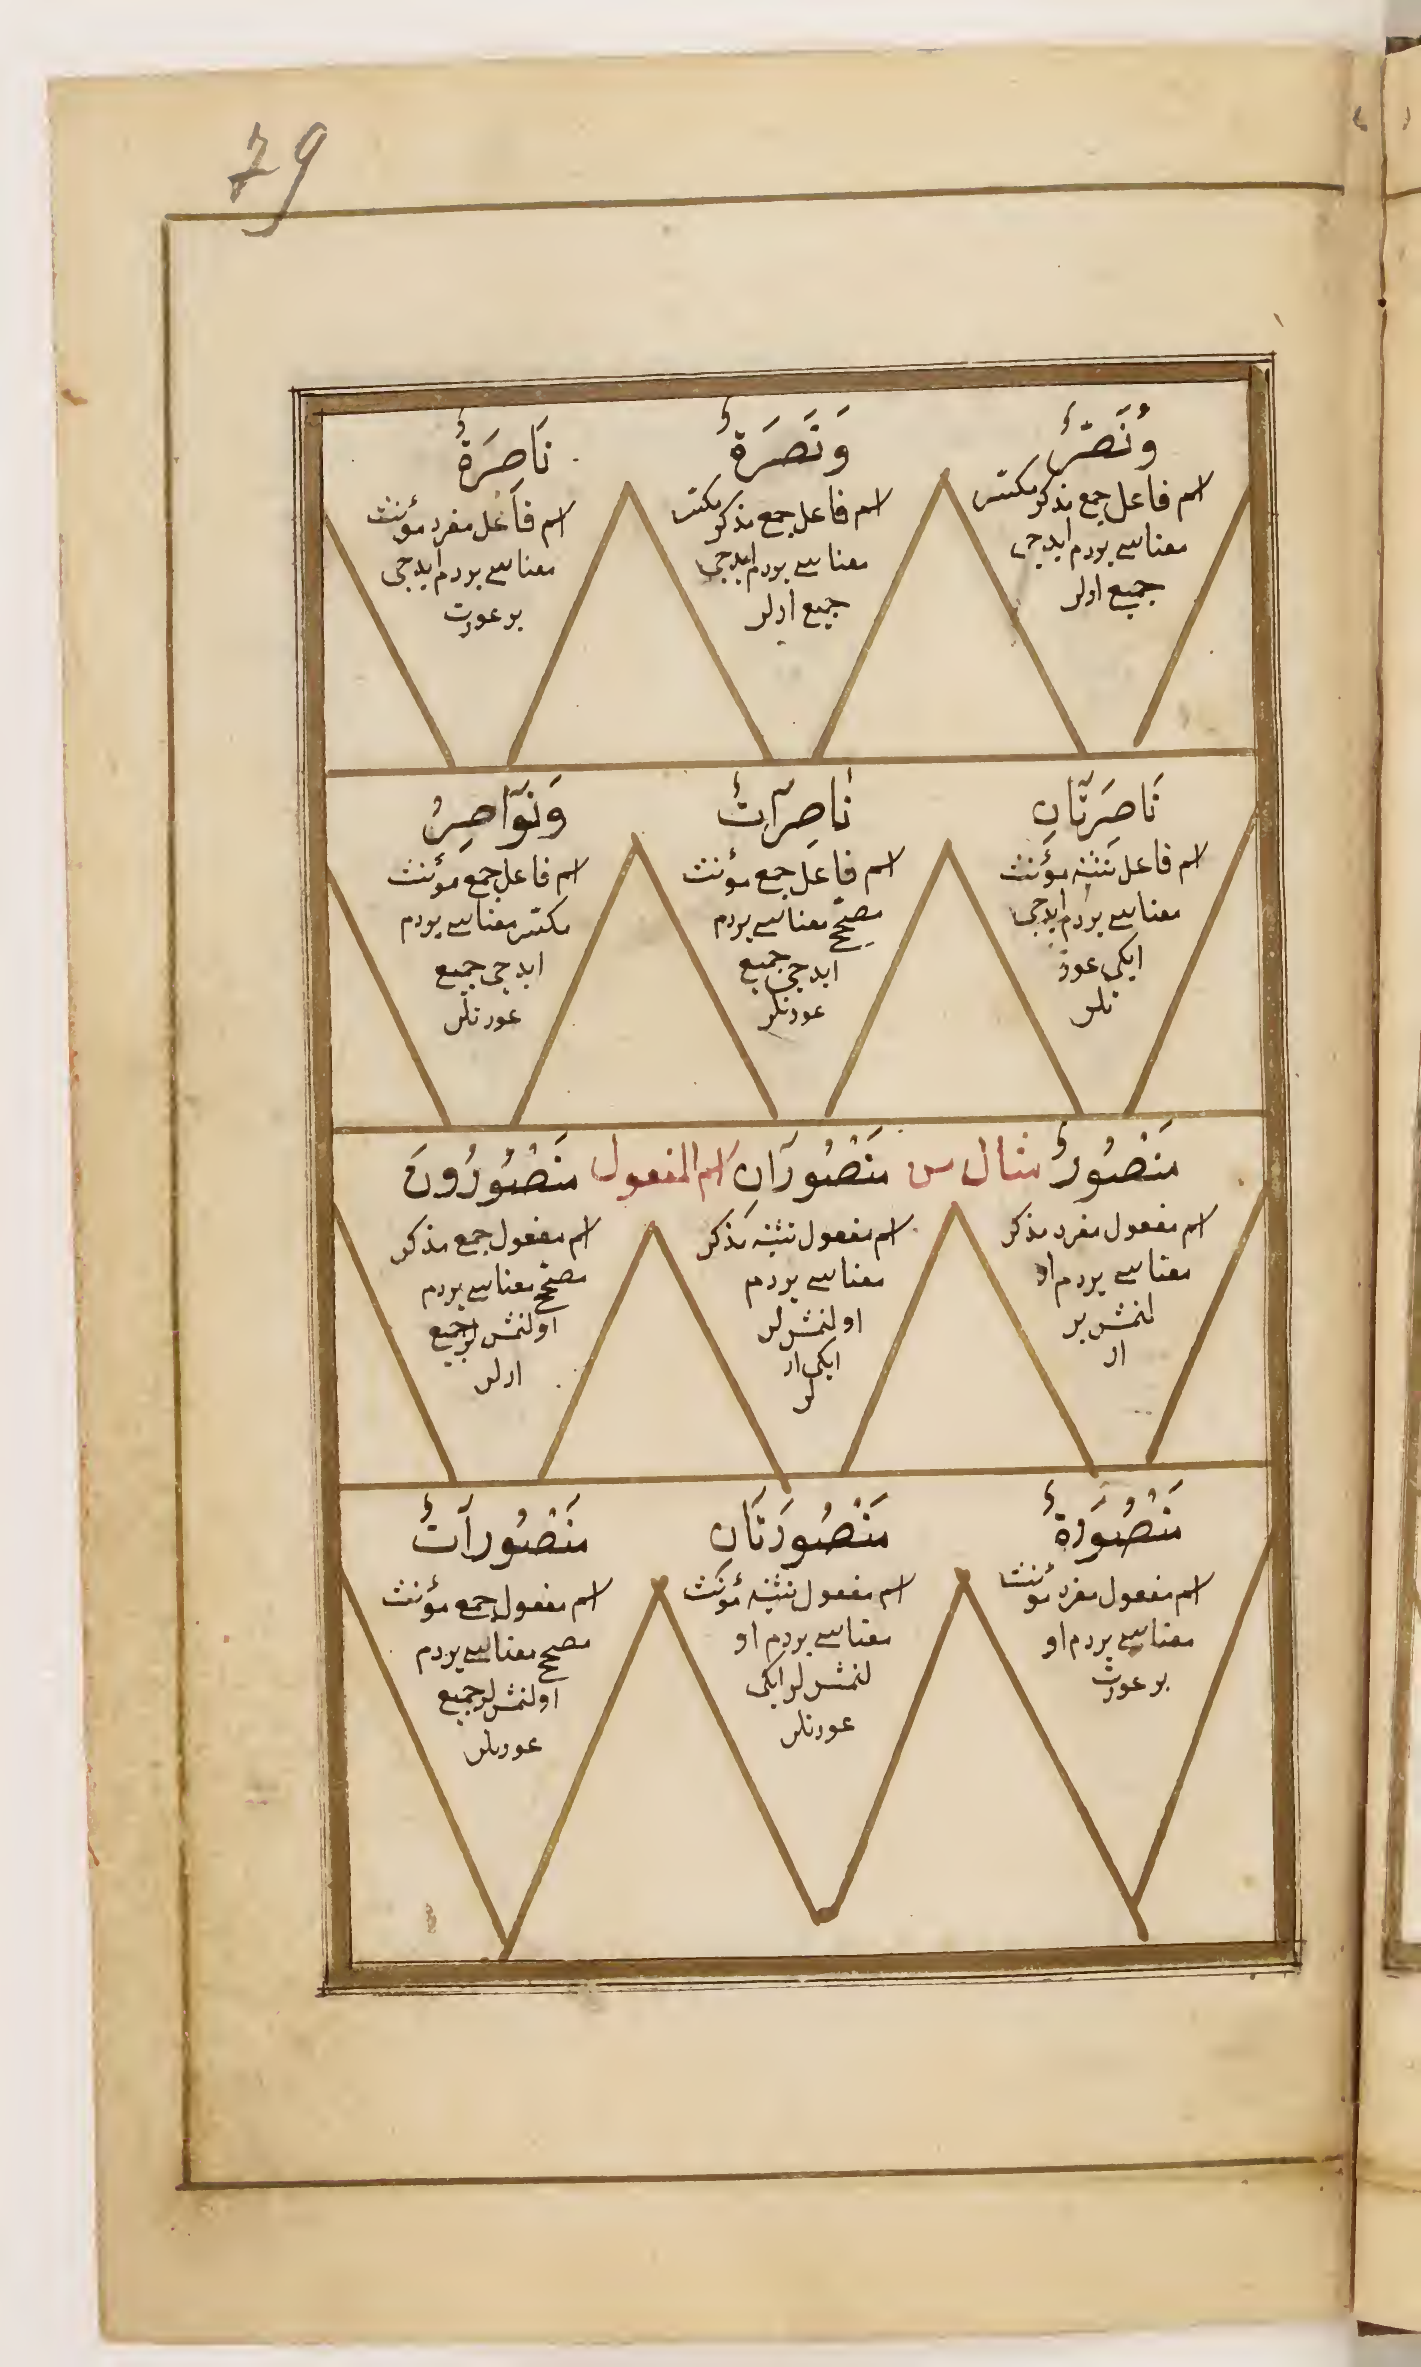 79
وَنُصَّرٌ
اسم فاعل جمع مذكر مكسّر
معناسے يردم ايدجى
جميع ارلر
وَنَصَرَةٌ
اسم فاعل جمع مذكر مكسّر
معناسے يردم ايدجى
جميع ارلر
نَاصِرَةٌ
اسم فاعل مفرد مؤنث
معناسے يردم ايدجى
بر عورت
نَاصِرَتَانِ
اسم فاعل تثنيه مؤنث
معناسے يردم ايدجى
ايكى عور
تلر
نَاصِرَاتٌ
اسم فاعل جمع مؤنث
مصحّح معناسے يردم
ايدجى جميع
عورتلر
وَنَوَاصِرُ
اسم فاعل جمع مؤنث
مكسّر معناسے يردم
ايدجى جميع
عورتلر
مَنْصُورٌ مثال س مَنْصُورَانِ اسم المفعول مَنْصُورُونَ
اسم مفعول مفرد مذكر
معناسے يردم او
لنمش بر
ار
اسم مفعول تثنيه مذكر
معناسے يردم
اولنمش لر
ايكى ار
لر
اسم مفعول جمع مذكر
مصحّح معناسے يردم
اولنمش لر جميع
ارلر
مَنْصُورَةٌ
اسم مفعول مفرد مؤنث
معناسے يردم او
بر عورت
مَنْصُورَتَانِ
اسم مفعول تثنيه مؤنث
معناسے يردم او
لنمش لر ايكى
عورتلر
مَنْصُورَاتٌ
اسم مفعول جمع مؤنث
مصحح معناسے يردم
اولنمش لر جميع
عورتلر